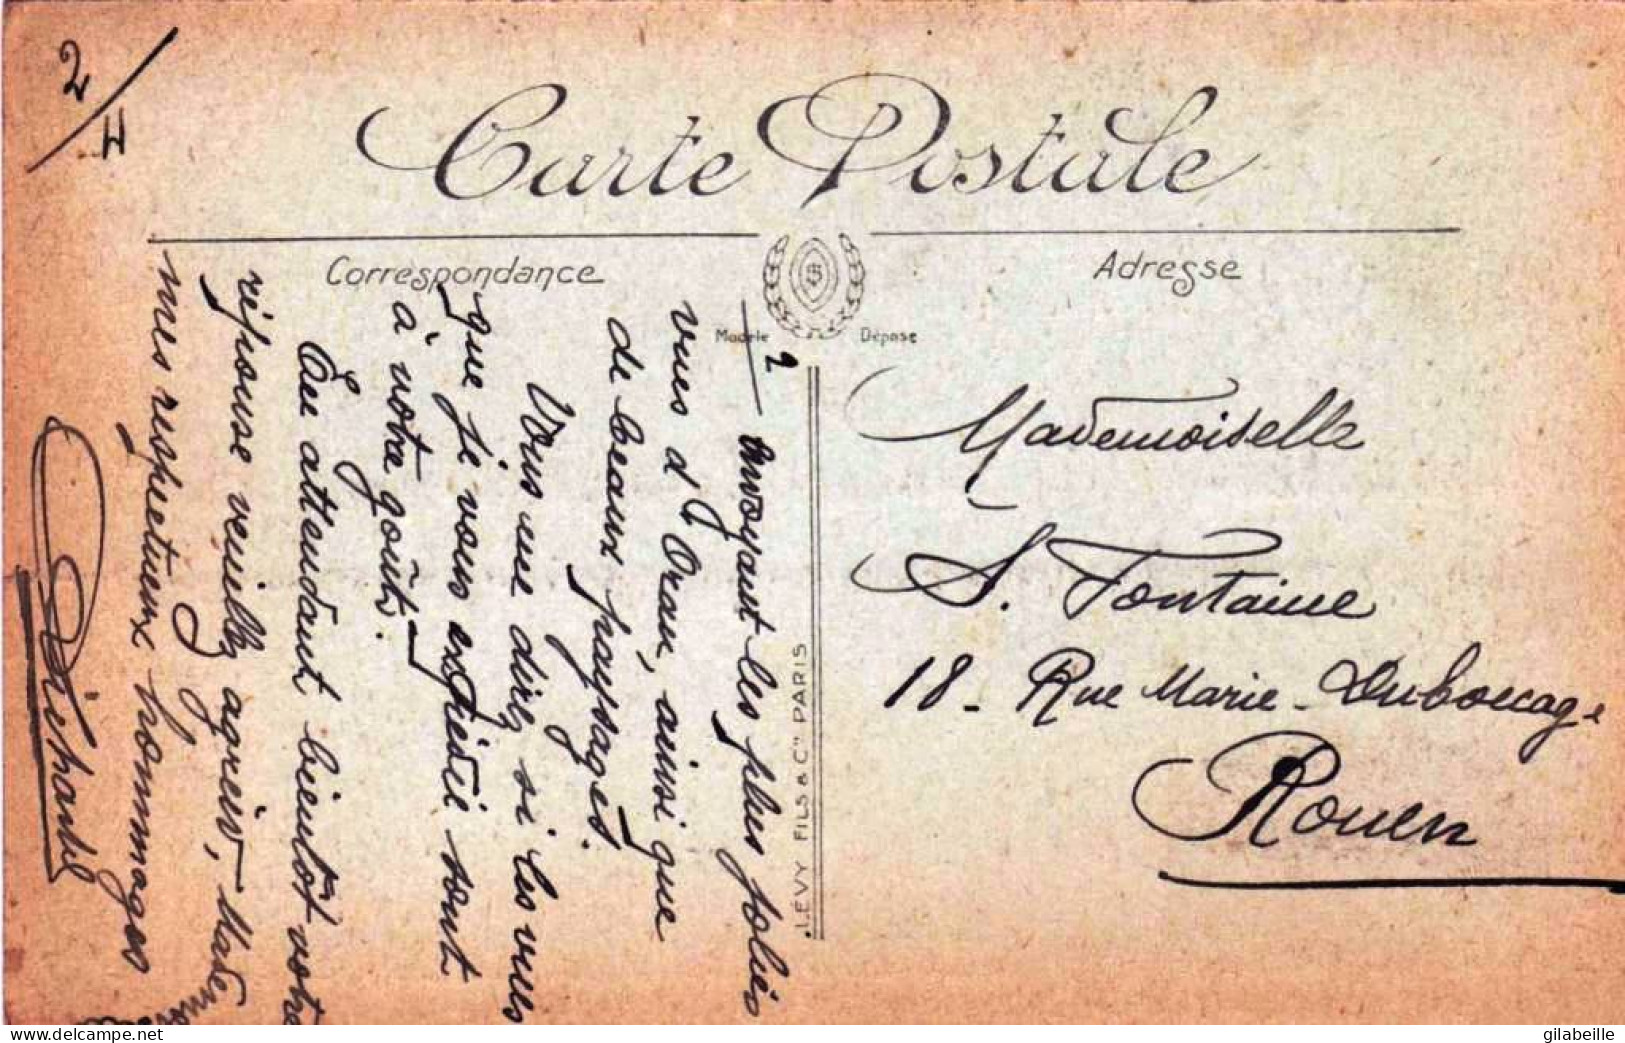 2/4
Carte Postale
Correspondance
Adresse
Modèle Déposé
LEVY FILS & Cie PARIS
2
envoyant les plus jolies
vues d'Oran, ainsi que
de beaux paysages.
Vous me direz si les vues
que je vous expédie sont
à votre goût.
En attendant bientôt votre
réponse veuillez agréer, Madem
mes respectueux hommages
Mademoiselle
S. Fontaine
18 - Rue Marie-Duboccage
Rouen
delcampe.net
gilabeille